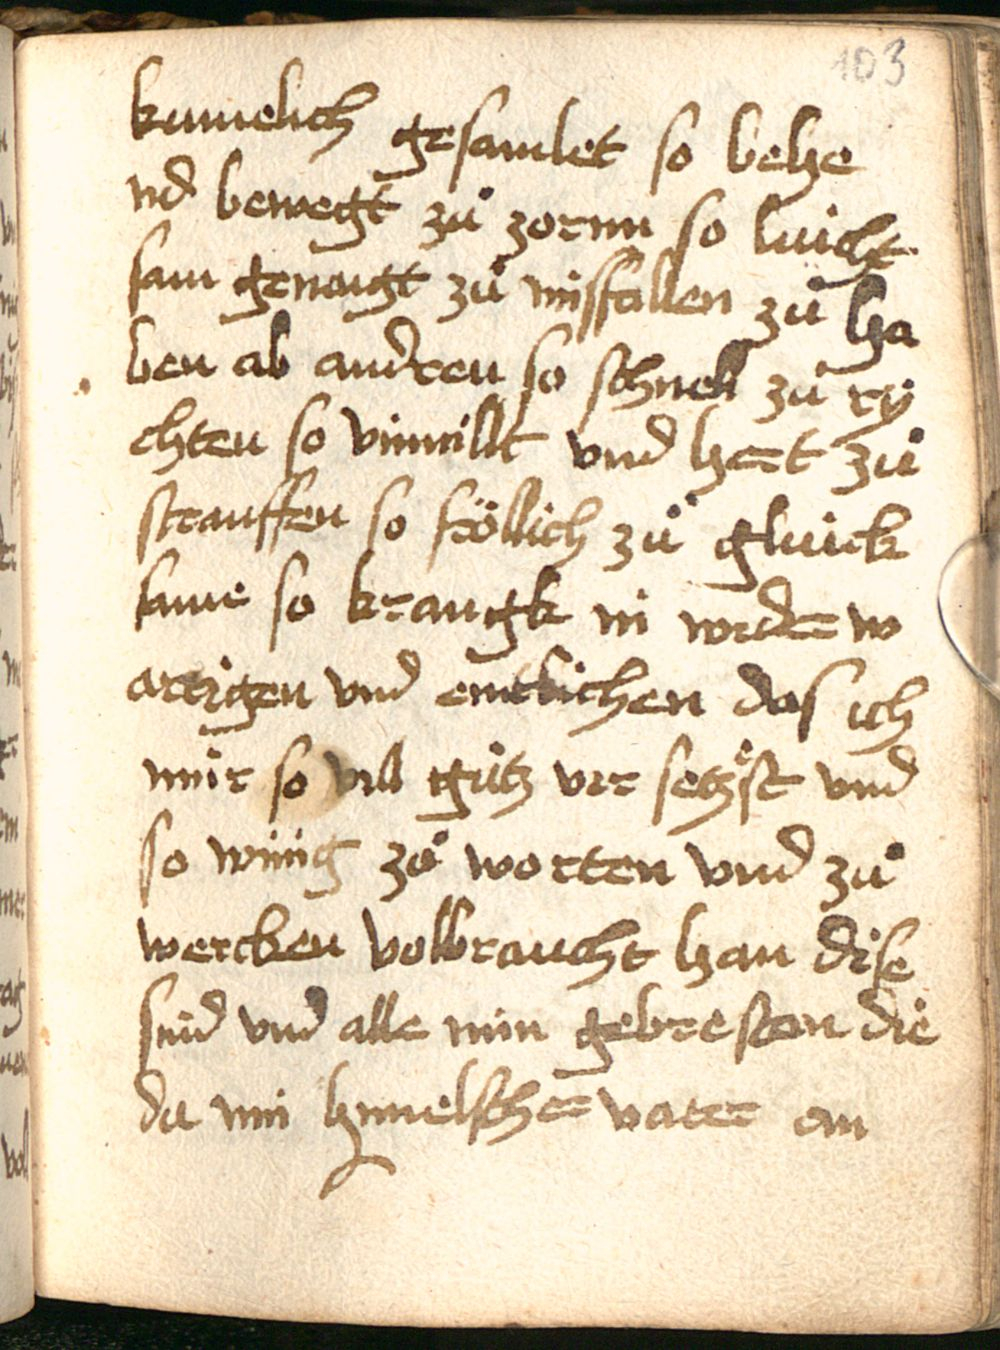 103
kumelich gesamlet so behe
nd bewegt zů zornn so luicht
sam genaigt zů missfallen zů ha
ben ab andren so schnell zů ry
chten so vinmillt vnd hert zů
strauffen so frölich zů gluick
same so krangk in weder w
artigen vnd emtlichen das ich
mir so vill gůtz ver setzst vnd
so winig zů worten vnd zů
wercken volbraucht han dise
sind vnd alle min gebresten die
da min himelscher vater an